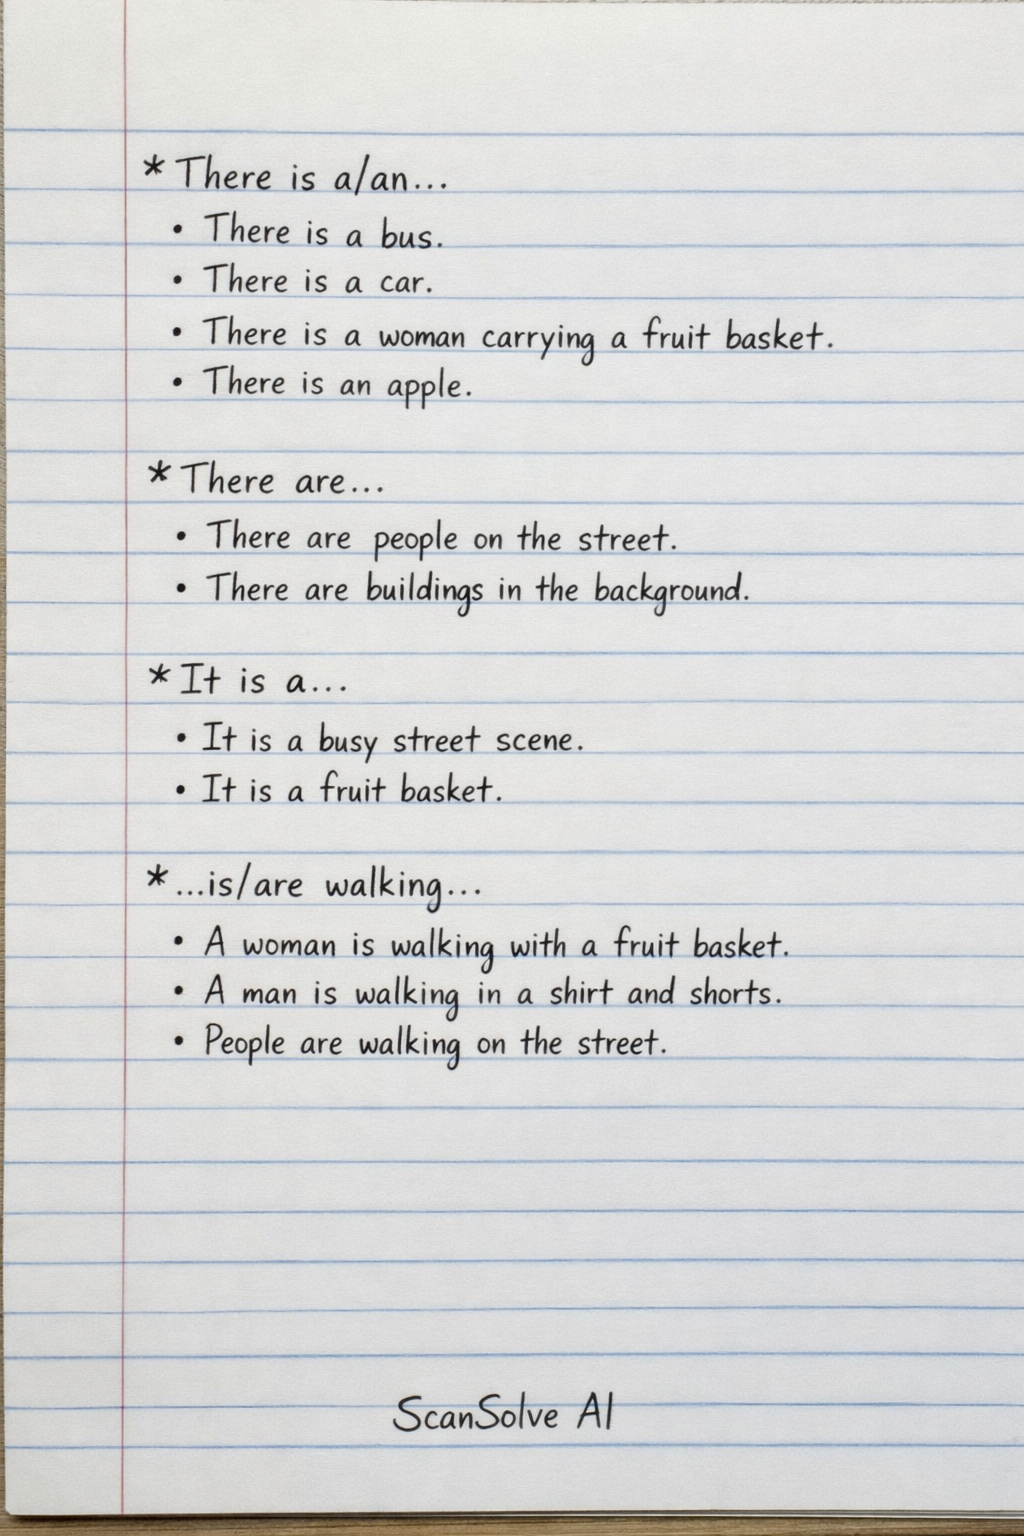 * There is a/an...
• There is a bus.
• There is a car.
• There is a woman carrying a fruit basket.
• There is an apple.
* There are...
• There are people on the street.
• There are buildings in the background.
* It is a...
• It is a busy street scene.
• It is a fruit basket.
* ...is/are walking...
• A woman is walking with a fruit basket.
• A man is walking in a shirt and shorts.
• People are walking on the street.
ScanSolve AI